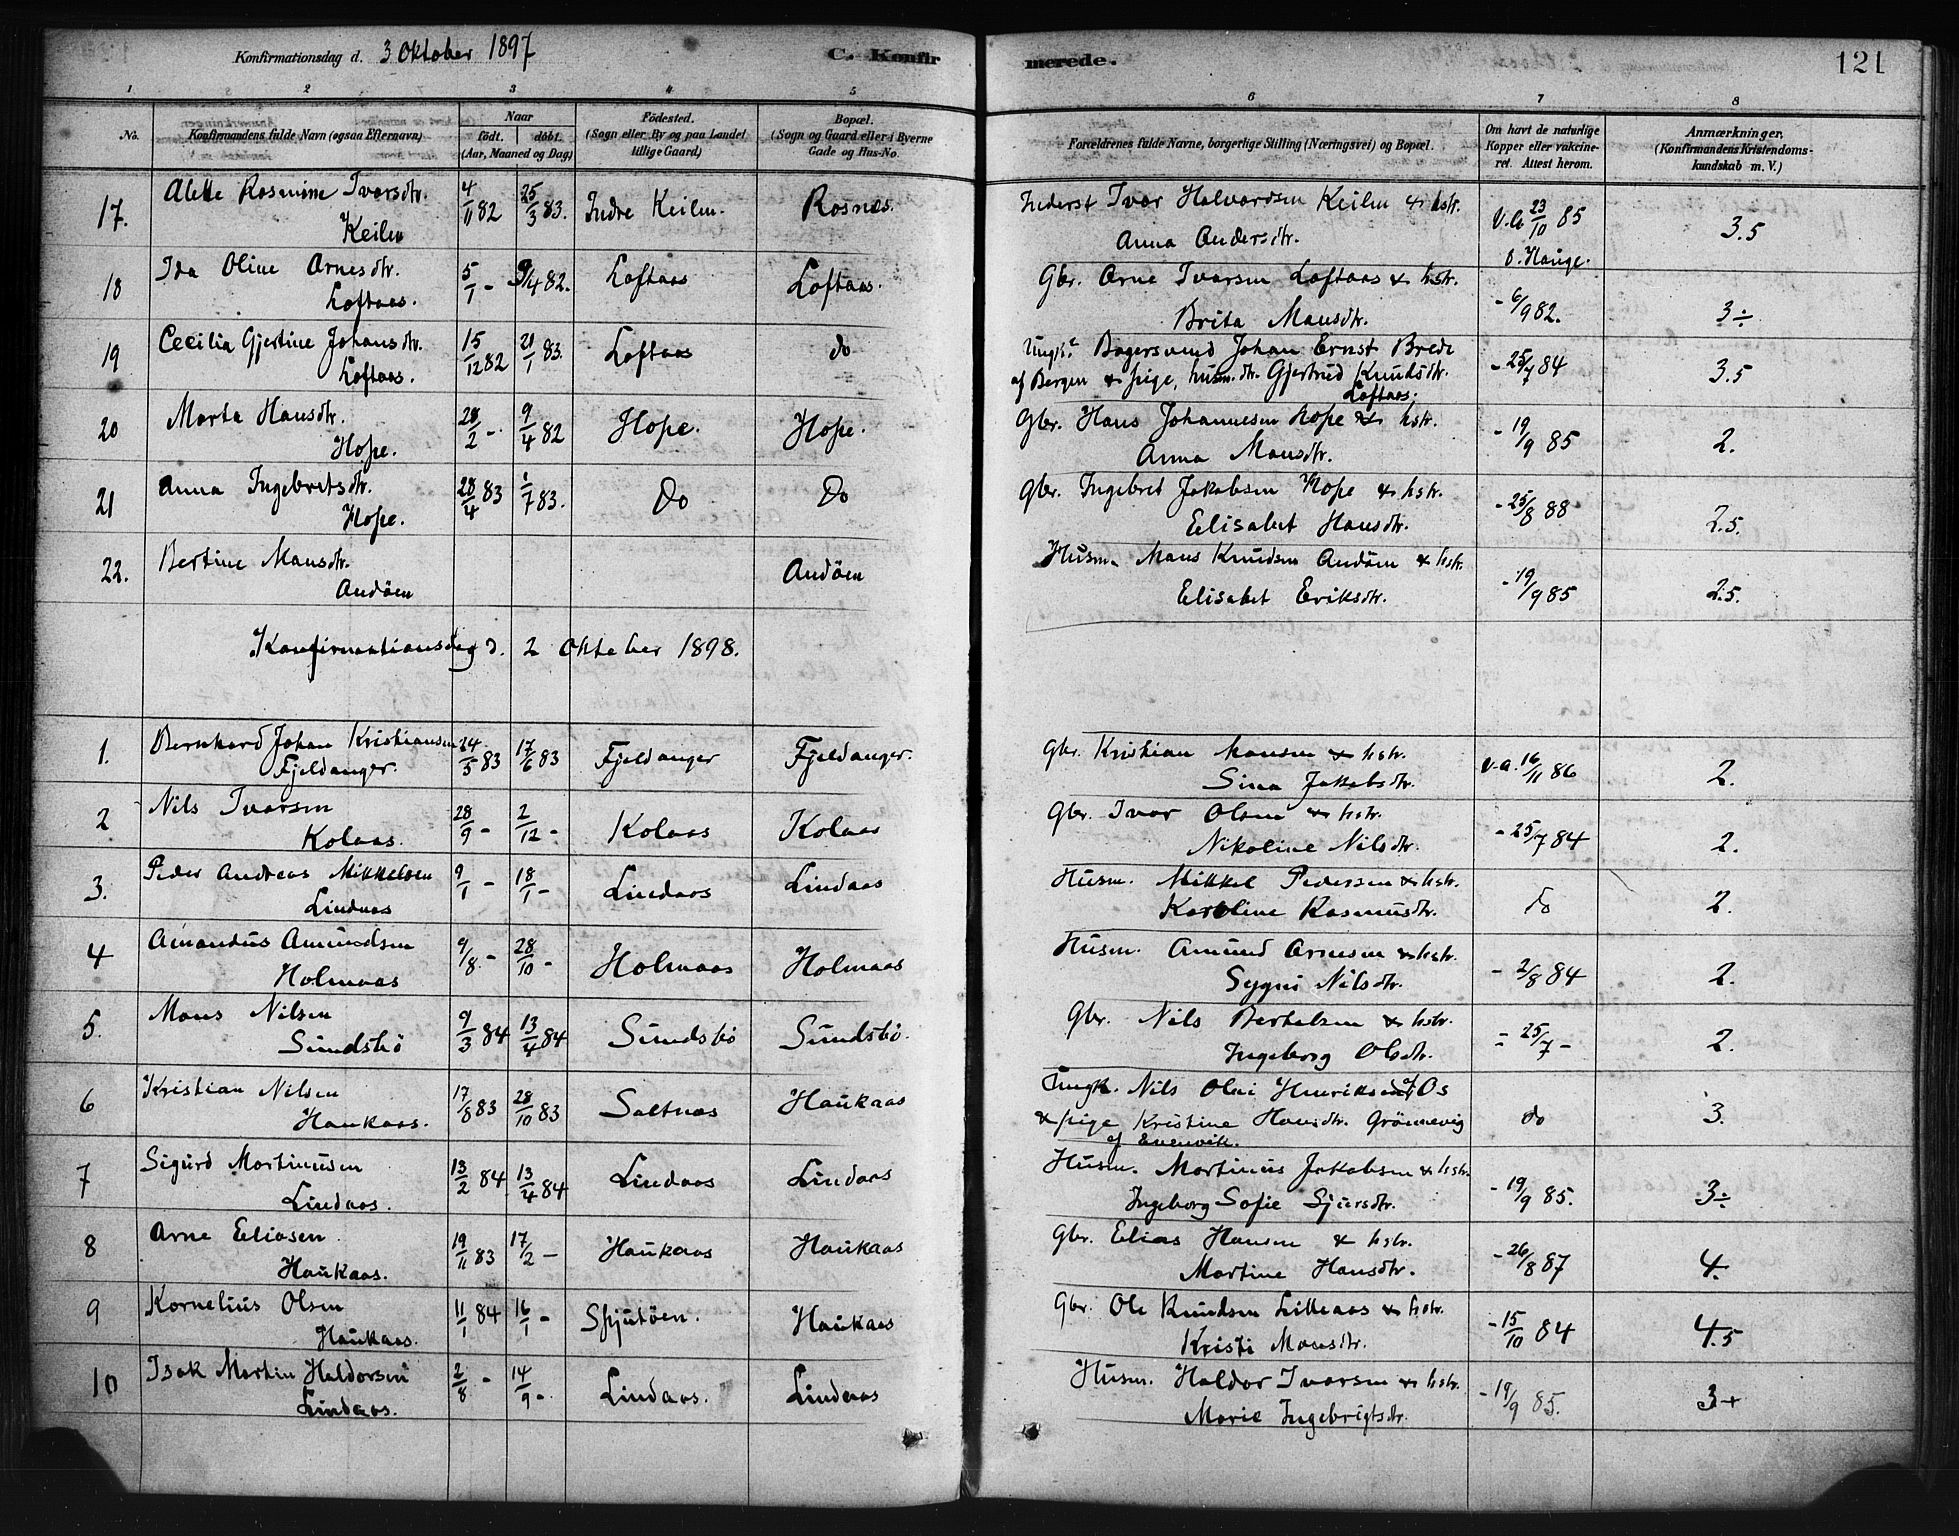 Konfirmationsdag d. 3 Oktober 1897
C. Konfirmerede.
121
1 2 3 4 5 6 7 8
No.
Konfirmandens fulde Navn (ogsaa Efternavn)
Naar
født. døbt.
(Aar, Maaned og Dag)
Fødested.
(Sogn eller By og paa Landet tillige Gaard)
Bopæl.
(Sogn og Gaard eller i Byerne Gade og Hus-No.
Forældrenes fulde Navne, borgerlige Stilling (Næringsvei) og Bopæl.
Om havt de naturlige Kopper eller vakcineret. Attest herom.
Anmærkninger,
(Konfirmandens Kristendomskundskab m. V.)
17. Alette Rasmine Ivarsdtr. 4/11 82 25/3 83. Indre Keilen. Rosnes. Inderst Ivar Halvardsen Keilen & hstr. V.A 23/10 85 3.5
Keilen Anna Andersdtr. O. Hauge.
18 Ida Oline Arnesdtr. 5/1 - 9/4 82. Loftaas Loftaas. Gbr. Arne Ivarsen Loftaas & hstr. - 6/9 82. 3÷
Loftaas. Brita Mansdtr.
19 Cecilia Gjertine Johansdtr. 15/12 82 21/1 83. Loftaas do Ungk. Bagersvend Johan Ernst Brede - 25/7 84 3.5
Loftaas. af Bergen & pige, husm.dtr. Gjertrud Knudsdtr.
Loftaas.
20 Marta Hansdtr. 28/2 - 9/4 82 Hope. Hope. Gbr. Hans Johannesen Hope & hstr. - 19/9 85 2.
Hope. Anna Mansdtr.
21 Anna Ingebretsdtr. 28/4 83 1/7 83. Do Do Gbr. Ingebret Jakobsen Hope & hstr. - 25/8 88 2.5
Hope. Elisabet Hansdtr.
22. Bertine Mansdtr. Andöen Husm. Mans Knudsen Andöen & hstr. - 19/9 85 2.5.
Andöen Elisabet Eriksdtr.
Konfirmationsdag d. 2 Oktober 1898.
1. Bernhard Johan Kristiansen 24/5 83 17/6 83 Fjeldanger Fjeldanger. Gbr. Kristian Hansen & hstr. V.A. 16/11 86 2.
Fjeldanger. Sina Jakobsdtr.
2 Nils Ivarsen 28/9 - 2/12 - Kolaas Kolaas Gbr. Ivar Olsen & hstr. - 25/7 84 2.
Kolaas. Nikoline Nilsdtr.
3. Peder Andreas Mikkelsen 9/1 - 18/1 - Lindaas Lindaas Husm. Mikkel Pedersen & hstr. do 2.
Lindaas Karoline Rasmusdtr.
4 Amandus Amundsen 9/8 - 28/10 - Holmaas Holmaas Husm. Amund Arnesen & hstr. - 2/8 84 2.
Holmaas Sygni Nilsdtr.
5. Mons Nilsen 9/3 84 13/4 84 Sundsbö Sundsbö. Gbr. Nils Bertelsen & hstr. - 25/7 - 2.
Sundsbö Ingeborg Olsdtr.
6 Kristian Nilsen 17/8 83 28/10 83 Saltnes Haukaas Ungk. Nils Olai Henriksen af Os do 3.
Haukaas. & pige Kristine Hansdtr. Grönnevig
af Evenvik.
7 Sigurd Martinusen 13/2 84 13/4 84 Lindaas Lindaas Husm. Martinus Jakobsen & hstr. - 19/9 85. 3÷
Lindaas. Ingeborg Sofie Sjursdtr.
8 Arne Eliasen 19/11 83 17/2 - Haukaas Haukaas Gbr. Elias Hansen & hstr. - 26/8 87 4.
Haukaas. Martine Hansdtr.
9 Kornelius Olsen 11/1 84 16/1 - Spjutöen. Haukaas Gbr. Ole Knudsen Lilleaas & hstr. - 15/10 84 4.5
Haukaas. Kristi Monsdtr.
10 Isak Martin Haldorsen 2/8 - 14/9 - Lindaas. Lindaas Husm. Haldor Ivarsen & hstr. - 19/9 85. 3+
Lindaas. Marie Ingebrigtsdtr.